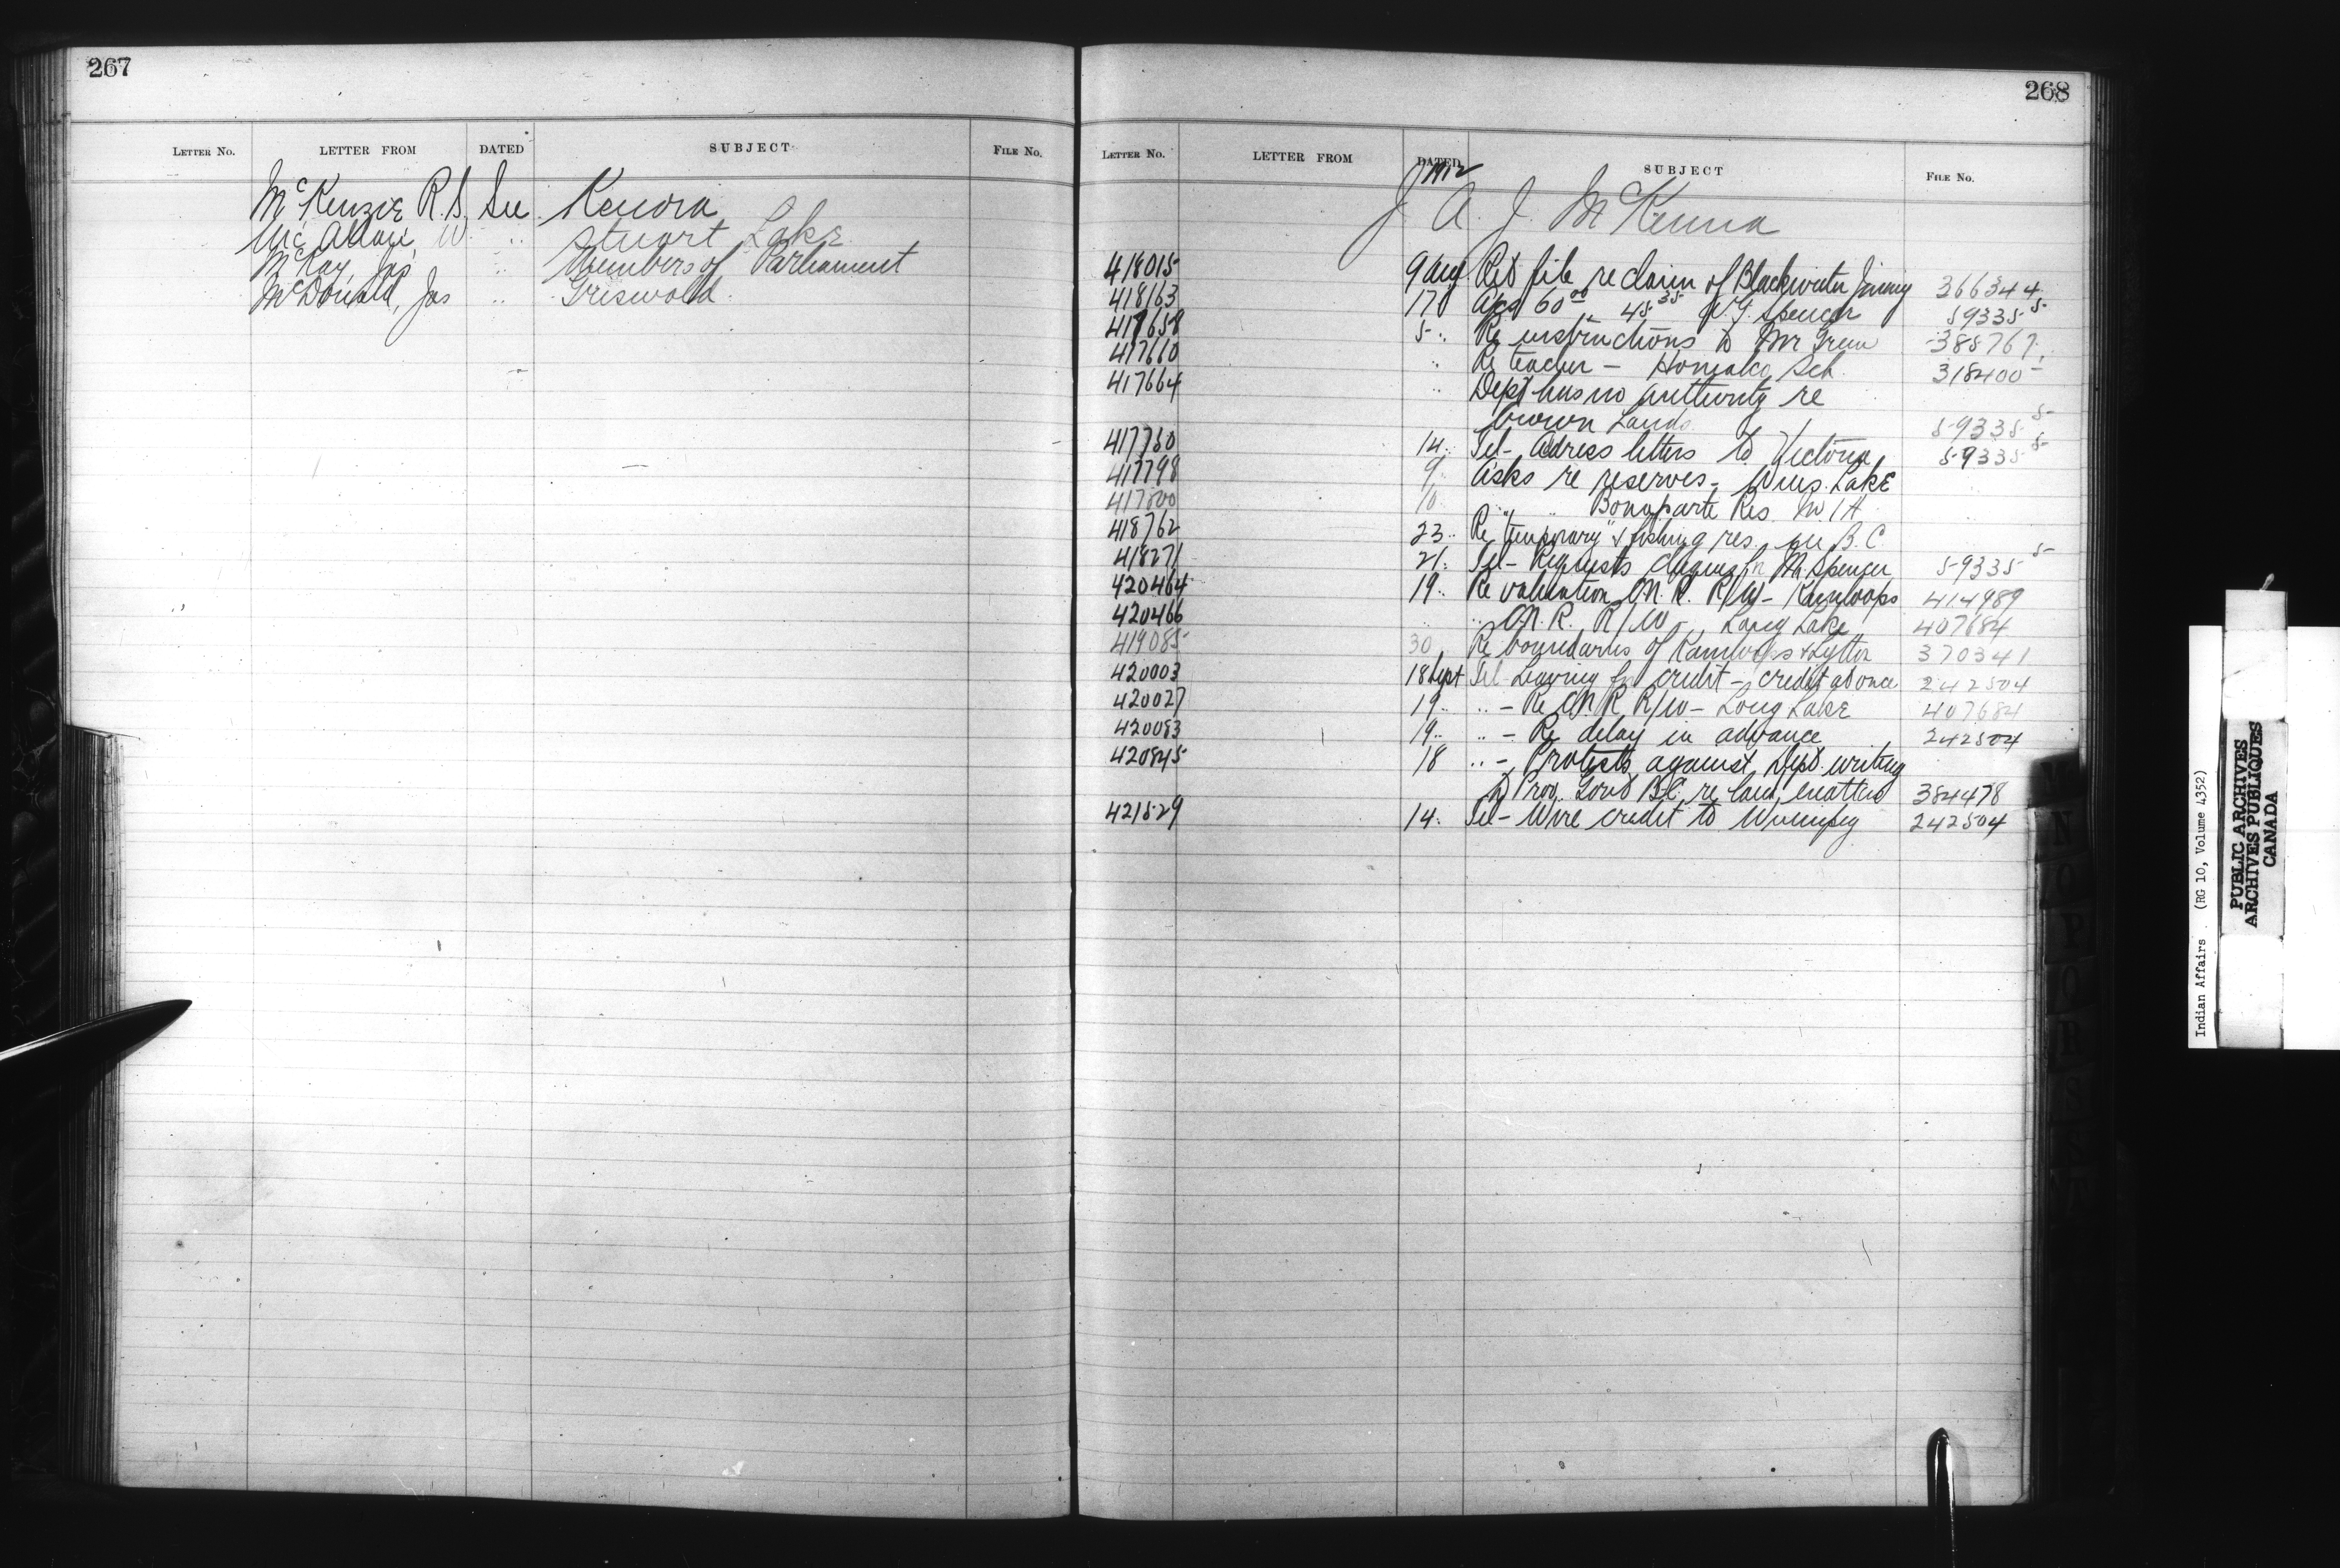 267
LETTER NO. LETTER FROM DATED SUBJECT FILE NO.
McKenzie R.S. See Kenora
W. " Stuart Lake
McKay, Jas " Members of Parliament
McDonald, Jas " Griswold
268
LETTER NO. LETTER FROM DATED SUBJECT FILE NO.
1912
J. A. J. McKenna
418015 9 Aug Ret file re claim of Blackwater Jimmy 366344
418163 17 60.00 45.35 Spencer 59335-5
417658 5 " Re instructions to Mr Green 385767
417660 " Re teacher - Homalco Sch. 318400
417664 " Dept has no authority re
Crown Lands 59335-5
417750 14 " Tel - Adress letters to Victoria 59335-5
417798 9 " Asks re reserves - Wms. Lake
417800 10 " " " Bonaparte Res. No 1A
418762 23 " Re "temporary" & fishing res. in B.C.
418271 21 " Tel - Requests cheques for Mr Spencer 59335-5
420464 19 " Re valuation C.N.R. R/W - Kamloops 414989
420466 " " C.N.R. R/W - Long Lake 407684
419085 30 Re boundaries of Kamloops & Lytton 370341
420003 18 Sept Tel - Leaving for credit - credit at once 242504
420027 19 " " - Re C.N.R. R/W - Long Lake 407684
420083 19 " " - Re delay in advance 242504
420845 18 " - Protests against Dept. writing
to Prov. Govt B.C. re land matters 384478
421529 14 " Tel - Wire credit to Winnipeg 242504
N
O
P
Q
R
S
Indian Affairs (RG 10, Volume 4352)
PUBLIC ARCHIVES
ARCHIVES PUBLIQUES
CANADA